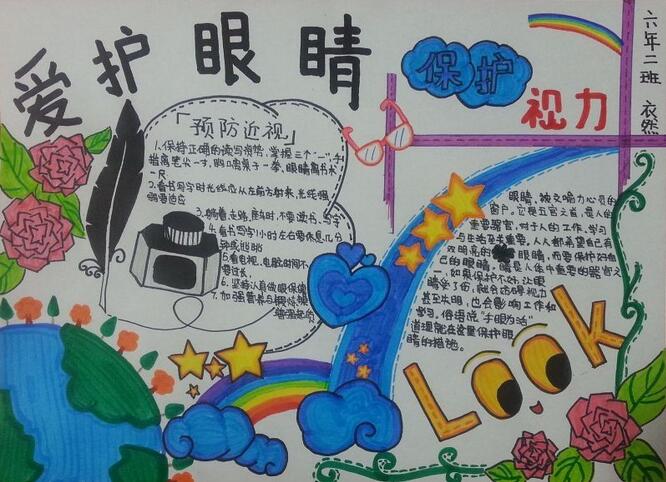 爱护眼睛
保护
视力
六年二班 衣然
「预防近视」
1、保持正确的读写姿势,掌握三个"一",手
指离笔尖一寸,胸离桌子一拳,眼睛离书本
一尺
2、看书写字时光线应从左前方射来,光线强
弱要适应
3、躺着、走路、乘车时,不要读书、写字
4、看书写字1小时左右要休息几分
钟
5、看电视、电脑时间不
要过长,
6、坚持认真做眼保健
7、加强营养与锻炼
眼睛,被
窗户。它是五官之首,是人的
重要器官,对于人的工作、学习
与生活至关重要,人人都希望自己有
双明亮的 眼睛,而要保护好自
己的眼睛。睛是人体中重要的器官之
一,如果保护不好,让眼
睛受了伤,就会造成视力
甚至失明,也会影响工作和
学习。俗话说
道理就在这里保护眼
睛的措施。
Look